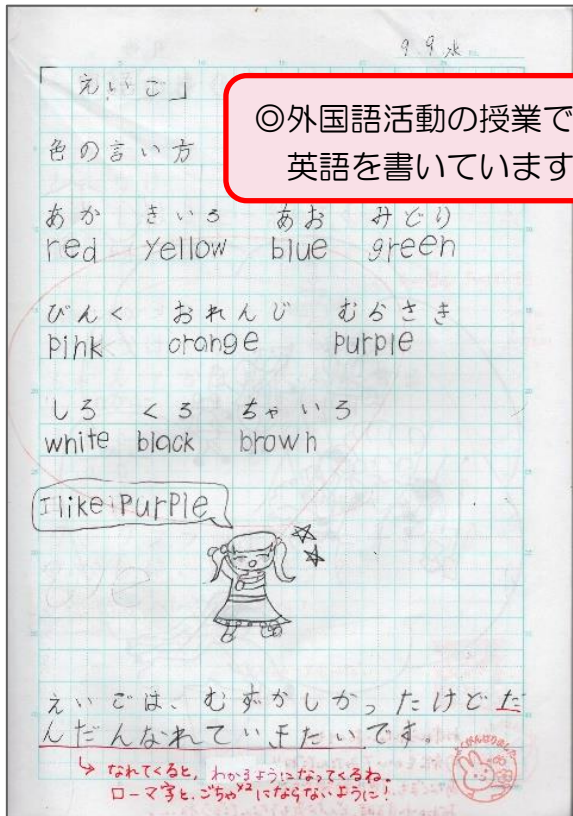 9.9 水
「えいご」
◎外国語活動の授業で
英語を書いています
色の言い方
あか きいろ あお みどり
red yellow blue green
ぴんく おれんじ むらさき
pink orange purple
しろ くろ ちゃいろ
white black brown
I like purple
えいごは、むずかしかったけどだ
んだんなれていきたいです。
↳ なれてくると、わかるようになってくるね。
ローマ字と、ごちゃ×2にならないように!